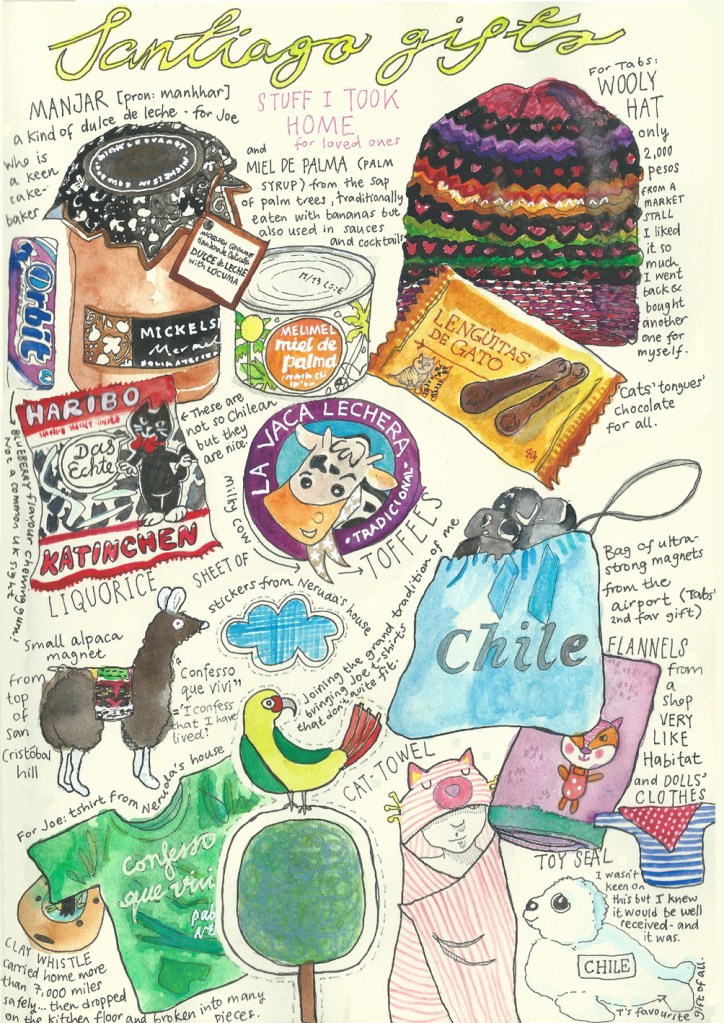 Santiago gifts
MANJAR [pron: manhhar]
a kind of dulce de leche - for Joe
who is
a keen
cake-
baker
STUFF I TOOK
HOME
for loved ones
and
MIEL DE PALMA (PALM
SYRUP) from the sap
of palm trees, traditionally
eaten with bananas but
also used in sauces
and cocktails
For Tabs:
WOOLY
HAT
only
2,000
pesos
FROM A
MARKET
STALL
I liked
it so
much
I went
back &
bought
another
one for
myself.
DULCE de LECHE
with LÚCUMA
MICKELS
Mermel
Orbit
MELIMEL
miel de
palma
LENGÜITAS
DE GATO
'Cats' tongues'
chocolate
for all.
HARIBO
Das
Echte
KATINCHEN
LIQUORICE
These are
not so Chilean
but they
are nice.
BLUEBERRY flavour chewing gum!
Not a common UK sight
LA VACA LECHERA
• TRADICIONAL •
milky cow
SHEET OF
TOFFEES
stickers from Neruda's house
Chile
Bag of ultra-
strong magnets
from the
airport (Tabs'
2nd fav gift)
small alpaca
magnet
from
top
of
san
Cristóbal
hill
"Confesso
que vivi"
= 'I confess
that I have
lived?'
Joining the grand tradition of me
bringing Joe t-shirts
that don't quite fit.
FLANNELS
from
a
shop
VERY
LIKE
Habitat
and DOLLS'
CLOTHES
For Joe: tshirt from Neruda's house
Confesso
que vivi
pab
NE
CAT-TOWEL
TOY SEAL
I wasn't
keen on
this but I knew
it would be well
received - and
it was.
CHILE
T's favourite
gift of all.
CLAY WHISTLE
carried home more
than 7,000 miles
safely... then dropped
on the kitchen floor and broken into many
pieces.